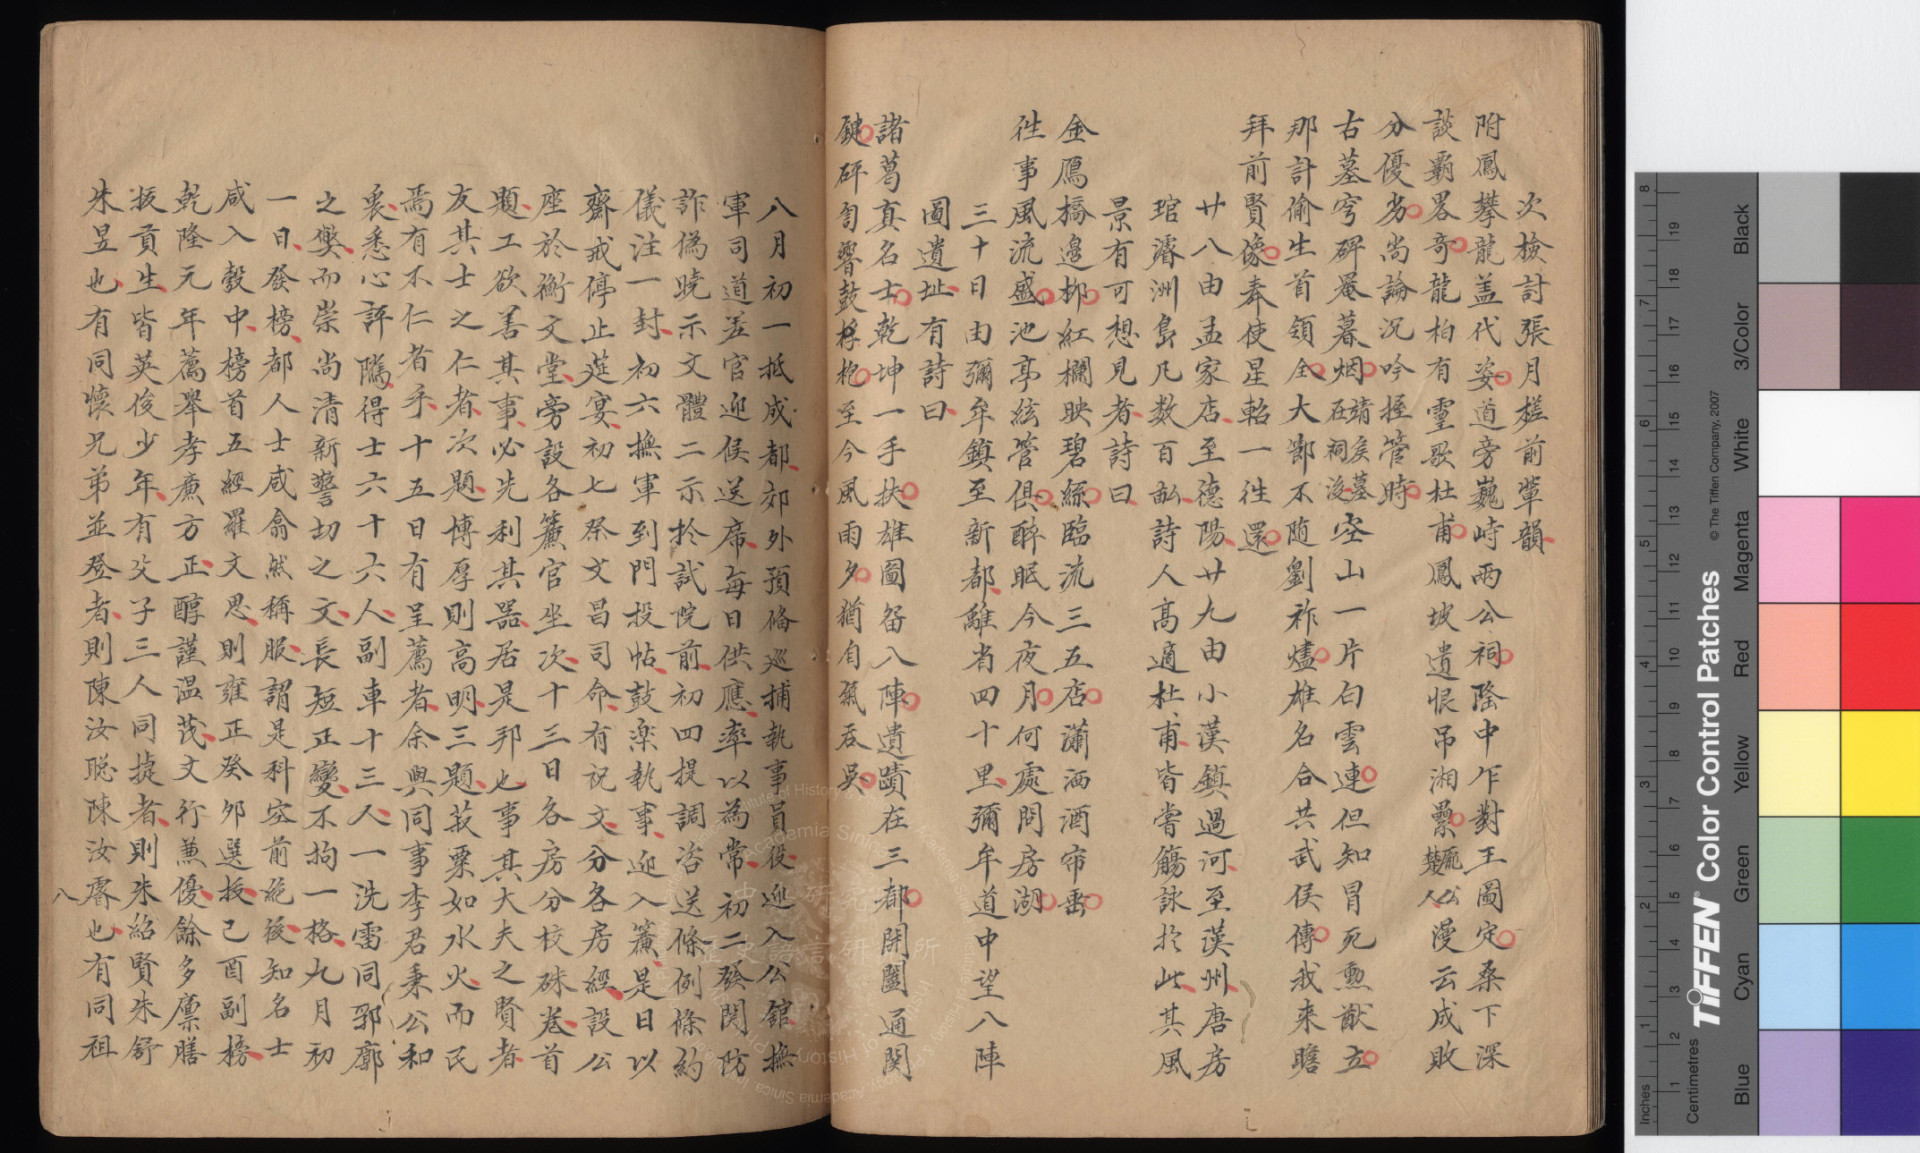 次檢討張月槎前輩韻
附鳳攀龍盖代姿道旁巍峙兩公祠隆中乍對王圖定桑下深
談霸畧奇龍柏有靈歌杜甫鳳坡遺恨吊湘纍龐公楚人漫云成敗
分優劣尚論沉吟捱管時
古墓穹碑罨暮烟靖矦墓在祠後空山一片白雲連但知冒死勲猷立
那計偷生首領全大鄼不随劉祚燼雄名合共武侯傳我来瞻
拜前賢像奉使星軺一徃還
廿八由孟家店至德陽廿九由小漢鎮過河至漢州唐房
琯濬洲島凡数百畝詩人高適杜甫皆嘗觴詠於此其風
景有可想見者詩曰
金鴈橋邊栁紅欄映碧絲臨流三五店瀟洒酒帘畨
徃事風流盛池亭絃管俱醉眠今夜月何處問房湖
三十日由彌牟鎮至新都離省四十里彌牟道中望八陣
圖遺址有詩曰
諸葛真名士乾坤一手扶雄圖留八陣遺蹟在三都開闔通関
鍵砰訇響鼓桴枹至今風雨夕猶自氣吞吳
八月初一抵成都郊外預俻巡捕執事員役迎入公舘撫
軍司道差官迎候送席每日供應率以為常初二發関防
詐偽曉示文體二示於試院前初四提調咨送條例條約
儀注一封初六撫軍到門投帖鼓楽執事迎入簾是日以
齋戒停止筵宴初七祭文昌司命有祝文分各房經設公
座於衡文堂旁設各簾官坐次十三日各房分校硃卷首
題工欲善其事必先利其器居是邦也事其大夫之賢者
友其士之仁者次題博厚則高明三題菽粟如水火而民
焉有不仁者乎十五日有呈薦者余與同事李君秉公和
衷悉心評隲得士六十六人副車十三人一洗雷同郛廓
之獘而崇尚清新警切之文長短正變不拘一格九月初
一日發榜都人士咸翕然稱服謂是科空前絶後知名士
咸入彀中榜首五經羅文思則雍正癸夘選拔己酉副榜
乾隆元年薦舉孝亷方正醇謹温茂文行兼優餘多廪膳
拔貢生皆英俊少年有父子三人同捷者則朱紹賢朱舒
朱昱也有同懷兄弟並登者則陳汝聡陳汝睿也有同祖
八
中央研究院
歷史語言研究所
Academia Sinica
TIFFEN Color Control Patches
© The Tiffen Company, 2007
Inches
Centimetres
Blue
Cyan
Green
Yellow
Red
Magenta
White
3/Color
Black